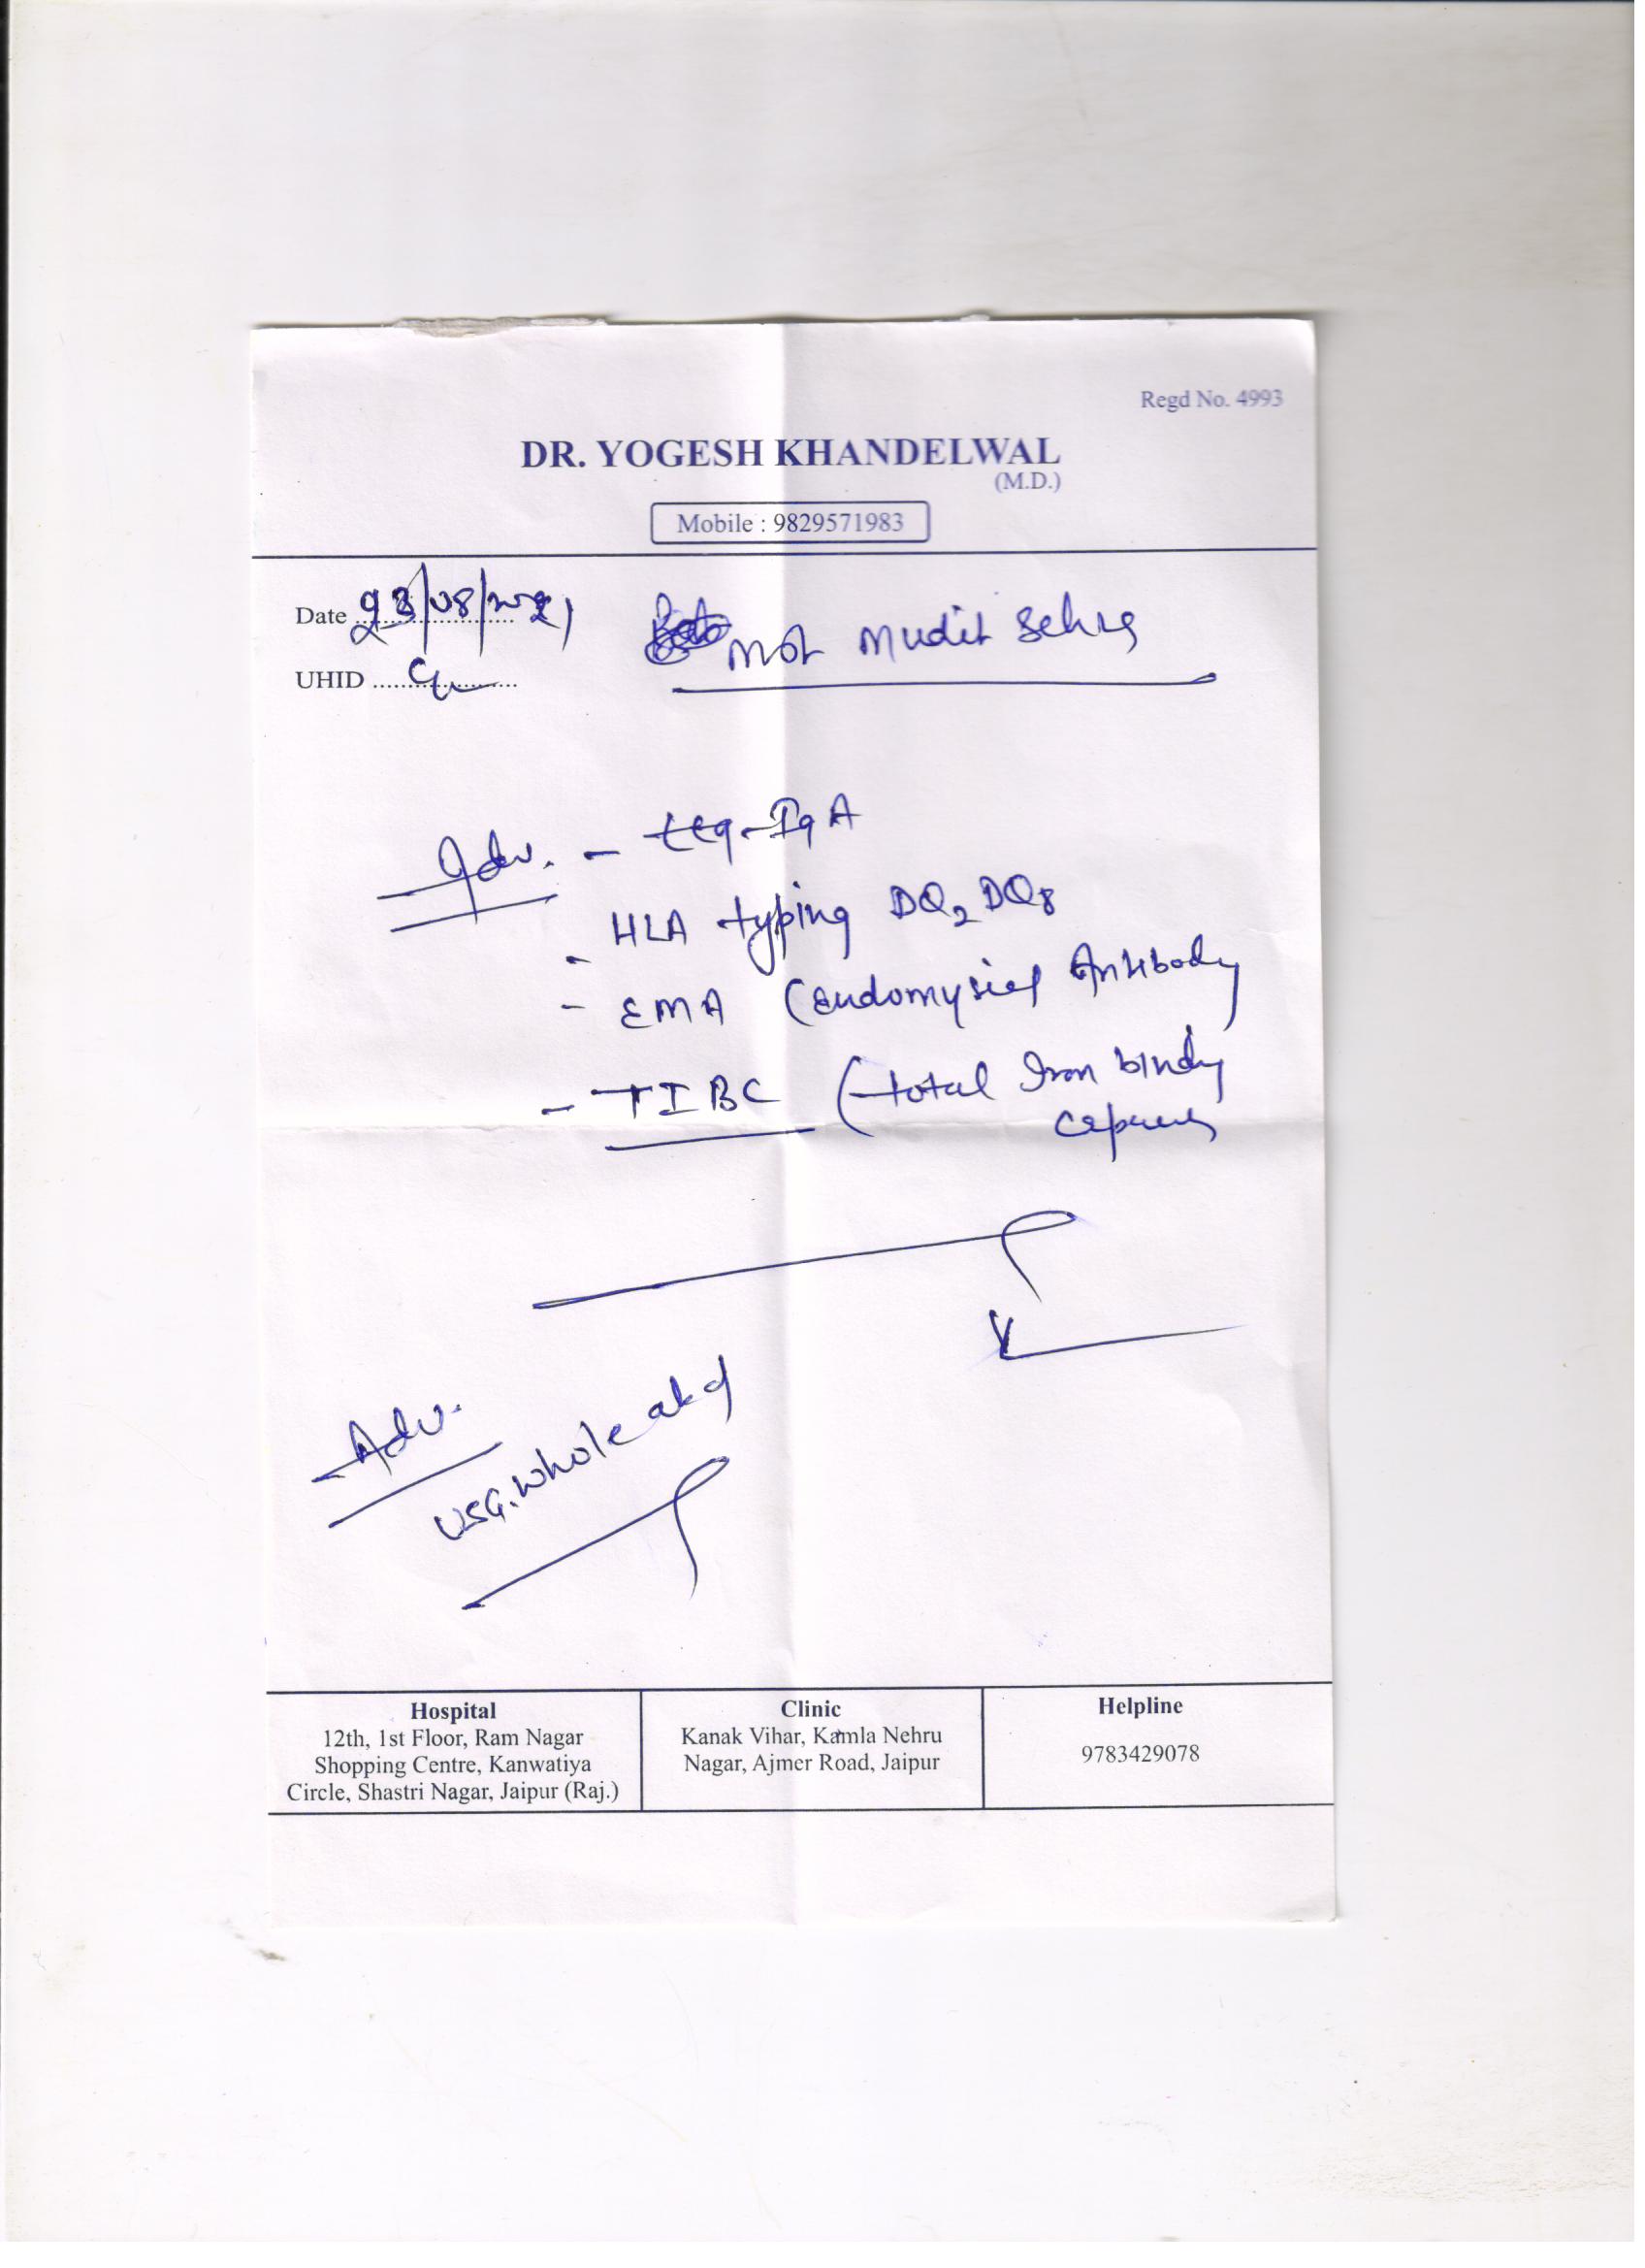 Regd No. 4993
DR. YOGESH KHANDELWAL
(M.D.)
Mobile : 9829571983
Date 23/08/2021
mst Mudit
UHID
Adv. - ttg-IgA
- HLA typing DQ2 DQ8
- EMA (Endomysial Antibody
- TIBC (total Iron binding
capacity
Adv.
USG. whole abd
Hospital
12th, 1st Floor, Ram Nagar
Shopping Centre, Kanwatiya
Circle, Shastri Nagar, Jaipur (Raj.)
Clinic
Kanak Vihar, Kamla Nehru
Nagar, Ajmer Road, Jaipur
Helpline
9783429078